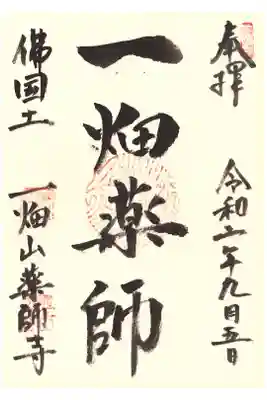 奉拝
令和二年九月五日
一畑薬師
佛国土
一畑山薬師寺